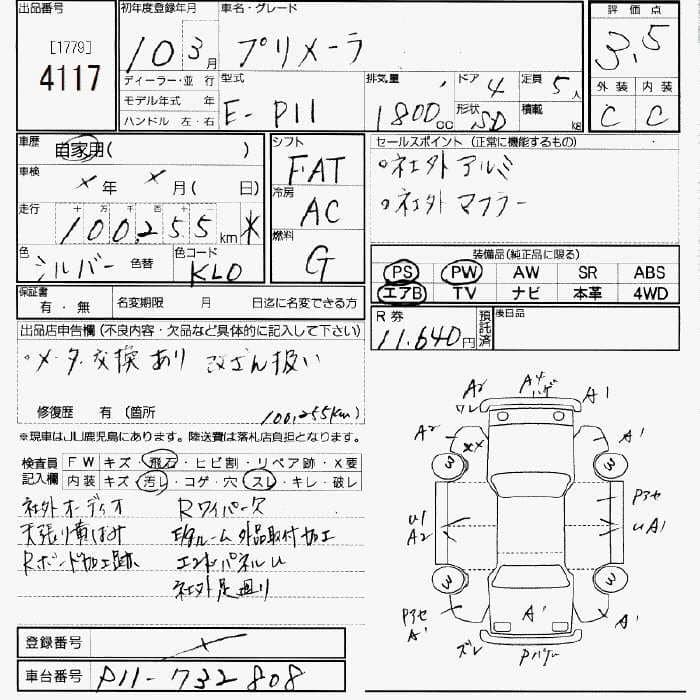 出品番号
[1779]
4117
初年度登録年月
10 3月
車名・グレード
プリメーラ
評価点
3,5
外装 内装
C C
ディーラー・並行
モデル年式 年
ハンドル 左・右
型式
E-P11
排気量
1800cc
ドア
4
形状 SD
定員
5人
積載
kg
車歴
自家用( )
車検
×年 ×月( 日)
走行
十 万 千 百 十
100,255km *
色
シルバー 色替
色コード
KL0
シフト
FAT
冷房
AC
燃料
G
セールスポイント(正常に機能するもの)
○社外アルミ
○社外マフラー
装備品(純正品に限る)
PS PW AW SR ABS
エアB TV ナビ 本革 4WD
保証書
有・無
名変期限 月 日迄に名変できる方
R券
11,640円
預託済
後日品
出品店申告欄(不良内容・欠品など具体的に記入して下さい)
○メータ交換あり 改ざん扱い
修復歴 有(箇所
100,255km)
※現車はJU鹿児島にあります。陸送費は落札店負担となります。
検査員記入欄
FW キズ・飛石・ヒビ割・リペア跡・X要
内装 キズ・汚レ・コゲ・穴・スレ・キレ・破レ
社外オーディオ Rワイパー欠
天張り黄ばみ E/gルーム外品取付加工
Rボード加工跡 エンドパネルU
社外足廻り
登録番号
車台番号 P11-732808
A2
ワレ
A4
ハゲ
A1
A2
××
A1
3
3
Pアセ
U1
A2
UA1
3
3
Pアセ
A1
A1
A1
ズレ
Pハゲ